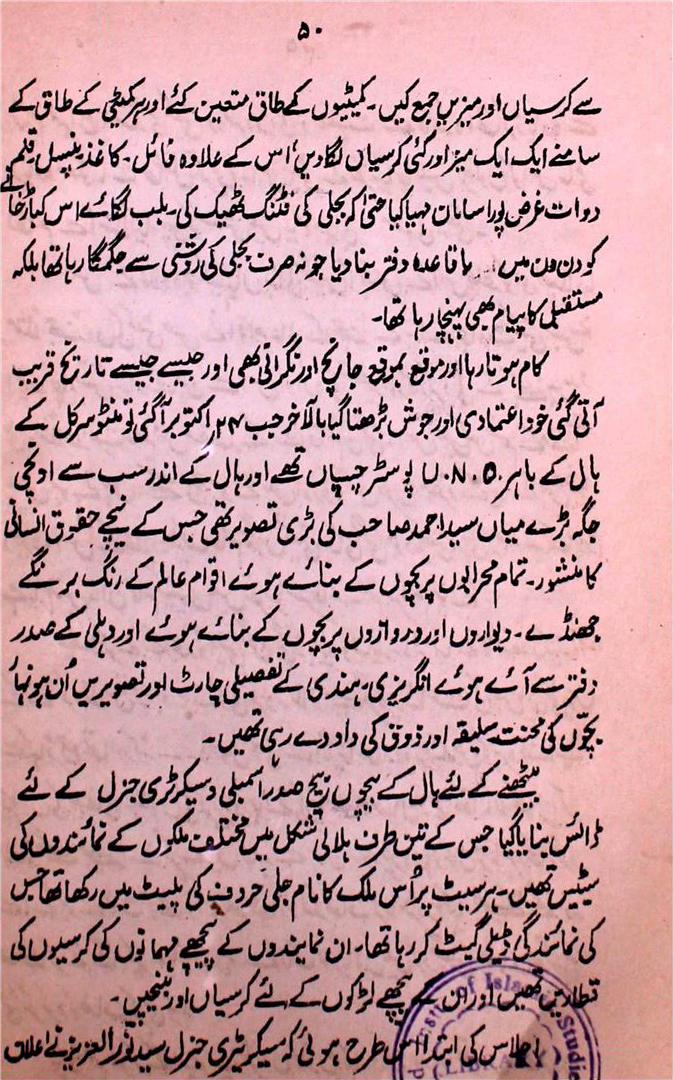 ۵۰
سے کرسیاں اور میزیں جمع کیں۔ کمیٹیوں کے طاق متعین کئے اور ہر کمیٹی کے طاق کے
سامنے ایک ایک میز اور کئی کرسیاں لگادیں، اس کے علاوہ فائل۔ کاغذ پنسل۔ قلم
دوات غرض پورا سامان مہیا کیا حتیٰ کہ بجلی کی فٹنگ ٹھیک کی۔ بلب لگائے اس کباڑخانے
کو دن ون میں باقاعدہ دفتر بنا دیا جو نہ صرف بجلی کی روشنی سے جگمگا رہا تھا بلکہ
مستقبل کا پیام بھی پہنچا رہا تھا۔
کام ہوتا رہا اور موقع بموقع جانچ اور نگرانی بھی اور جیسے جیسے تاریخ قریب
آتی گئی خود اعتمادی اور جوش بڑھتا گیا بالآخر جب ۲۴ اکتوبر آگئی تو منٹو سرکل کے
ہال کے باہر U.N.O. پوسٹر چسپاں تھے اور ہال کے اندر سب سے اونچی
جگہ بڑے میاں سید احمد صاحب کی بڑی تصویر تھی جس کے نیچے حقوق انسانی
کا منشور۔ تمام محرابوں پر بچوں کے بنائے ہوئے اقوام عالم کے رنگ برنگے
جھنڈے۔ دیواروں اور دروازوں پر بچوں کے بنائے ہوئے اور دہلی کے صدر
دفتر سے آئے ہوئے انگریزی۔ ہندی کے تفصیلی چارٹ اور تصویریں اُن ہونہار
بچّوں کی محنت سلیقہ اور ذوق کی داد دے رہی تھیں۔
بیٹھنے کے لئے ہال کے بیچوں بیچ صدر اسمبلی و سیکرٹری جنرل کے لئے
ڈائس بنایا گیا جس کے تین طرف ہلالی شکل میں مختلف ملکوں کے نمائندوں کی
سیٹیں تھیں۔ ہر سیٹ پر اُس ملک کا نام جلی حروف کی پلیٹ میں رکھا تھا جس
کی نمائندگی ڈیلی گیٹ کر رہا تھا۔ ان نمایندوں کے پیچھے مہمانوں کی کرسیوں کی
قطاریں تھیں اور ان کے پیچھے لڑکوں کے لئے کرسیاں اور بنچیں۔
اجلاس کی ابتدا اس طرح ہوئی کہ سیکریٹری جنرل سید نور العزیز نے اعلان
of Islamic Studies
LIBRARY